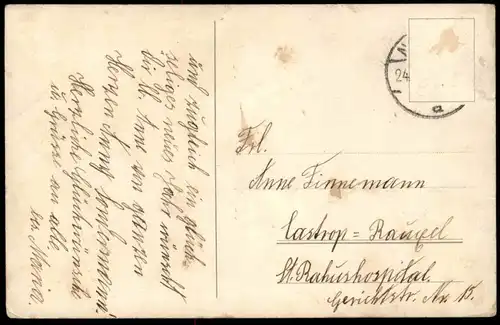 und zugleich ein glück-
seliges neues Jahr wünscht
dir lb. Anne von ganzen
Herzen Anny
Herzliche Glückwünsche
u. Grüße an alle
Maria.
24.
a
Frl.
Anne Finnemann
Castrop=Rauxel
St. Rochushospital.
Gerichtstr. No 15.